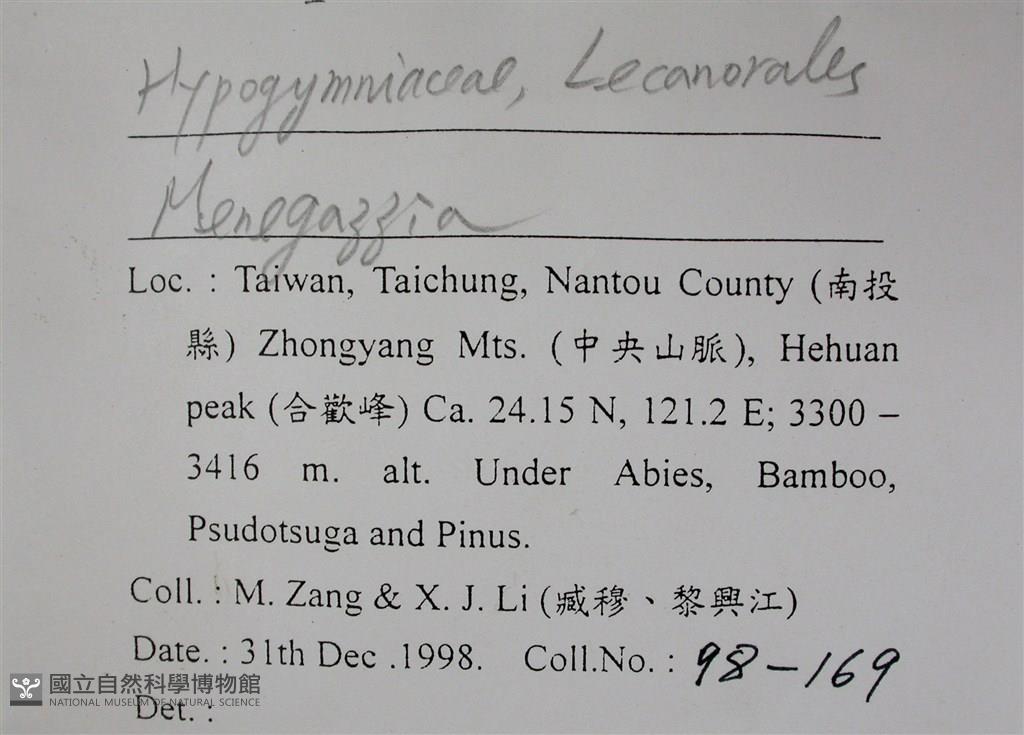 Hypogymniaceae, Lecanorales
Menegazzia
Loc. : Taiwan, Taichung, Nantou County (南投
縣) Zhongyang Mts. (中央山脈), Hehuan
peak (合歡峰) Ca. 24.15 N, 121.2 E; 3300 –
3416 m. alt. Under Abies, Bamboo,
Psudotsuga and Pinus.
Coll. : M. Zang & X. J. Li (臧穆、黎興江)
Date. : 31th Dec .1998. Coll.No. : 98-169
國立自然科學博物館
NATIONAL MUSEUM OF NATURAL SCIENCE
Det. :